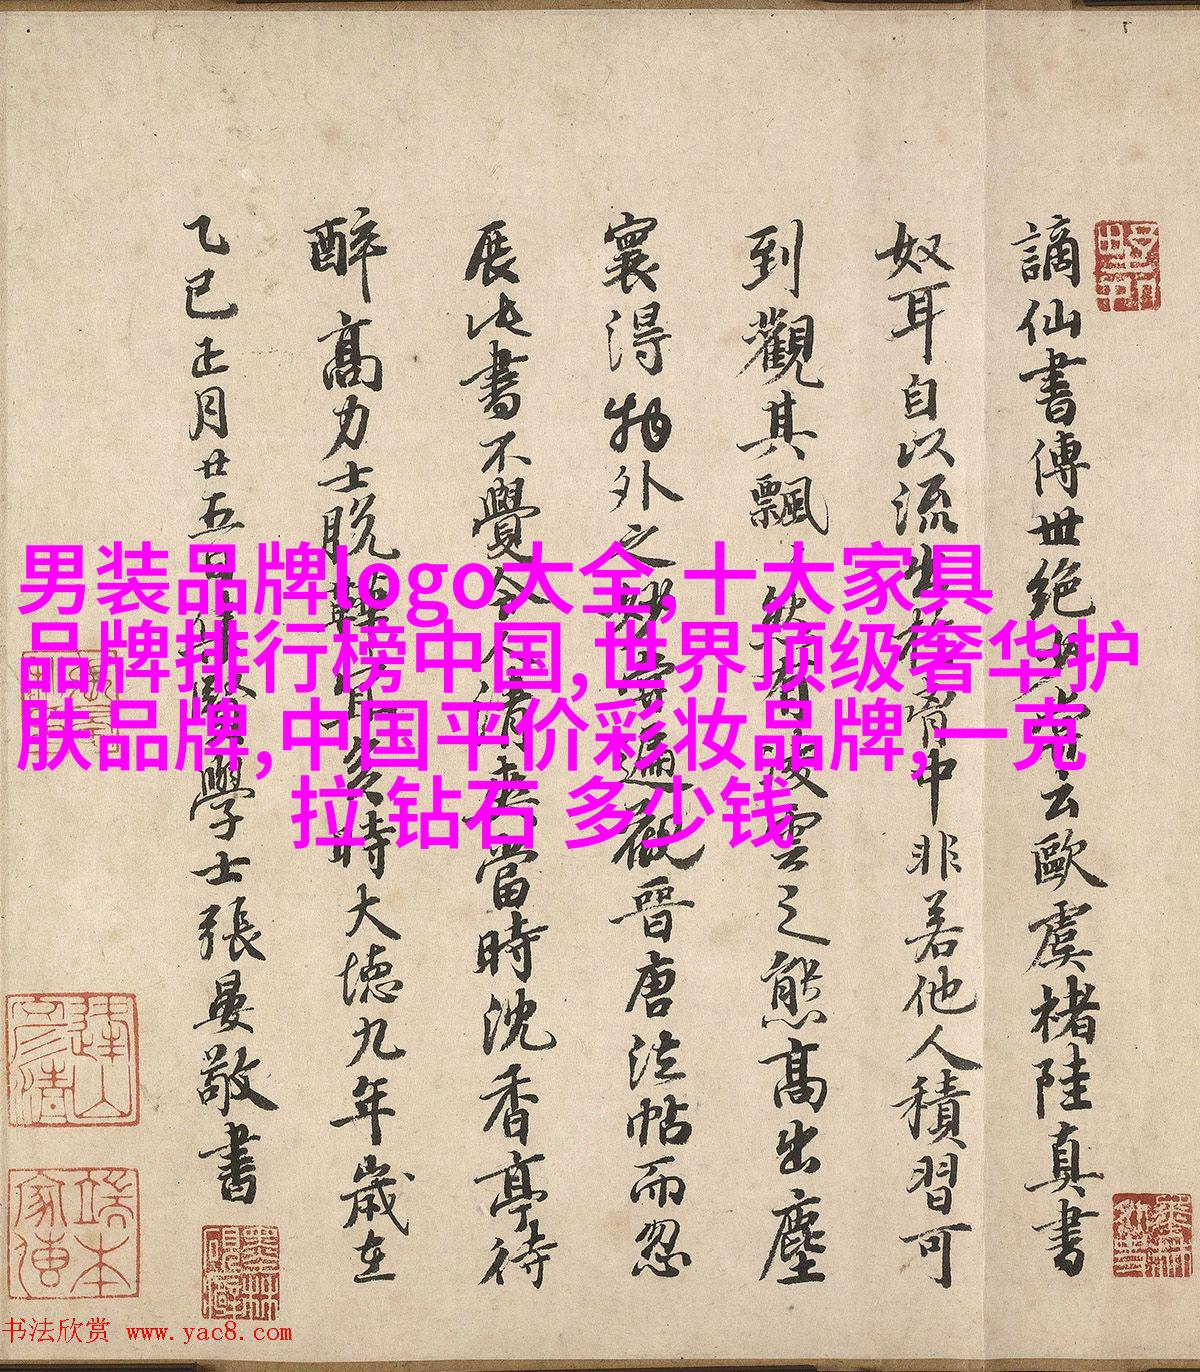 謫仙書傳世絕少嘗云歐虞褚陸真書
奴耳自以流出於胸中非若他人積習可
到觀其飄飄然有凌雲之態高出塵
寰得物外之妙嘗遍觀晉唐法帖而忽
展此書不覺令人清爽當時沈香亭待
醉高力士脫鞾
時大德九年歲在
乙巳正月廿五日
學士張晏敬書
男装品牌logo大全,十大家具
品牌排行榜中国,世界顶级奢华护
肤品牌,中国平价彩妆品牌,一克
拉 钻石 多少钱
端本
家傳
書法欣赏 www.yac8.com